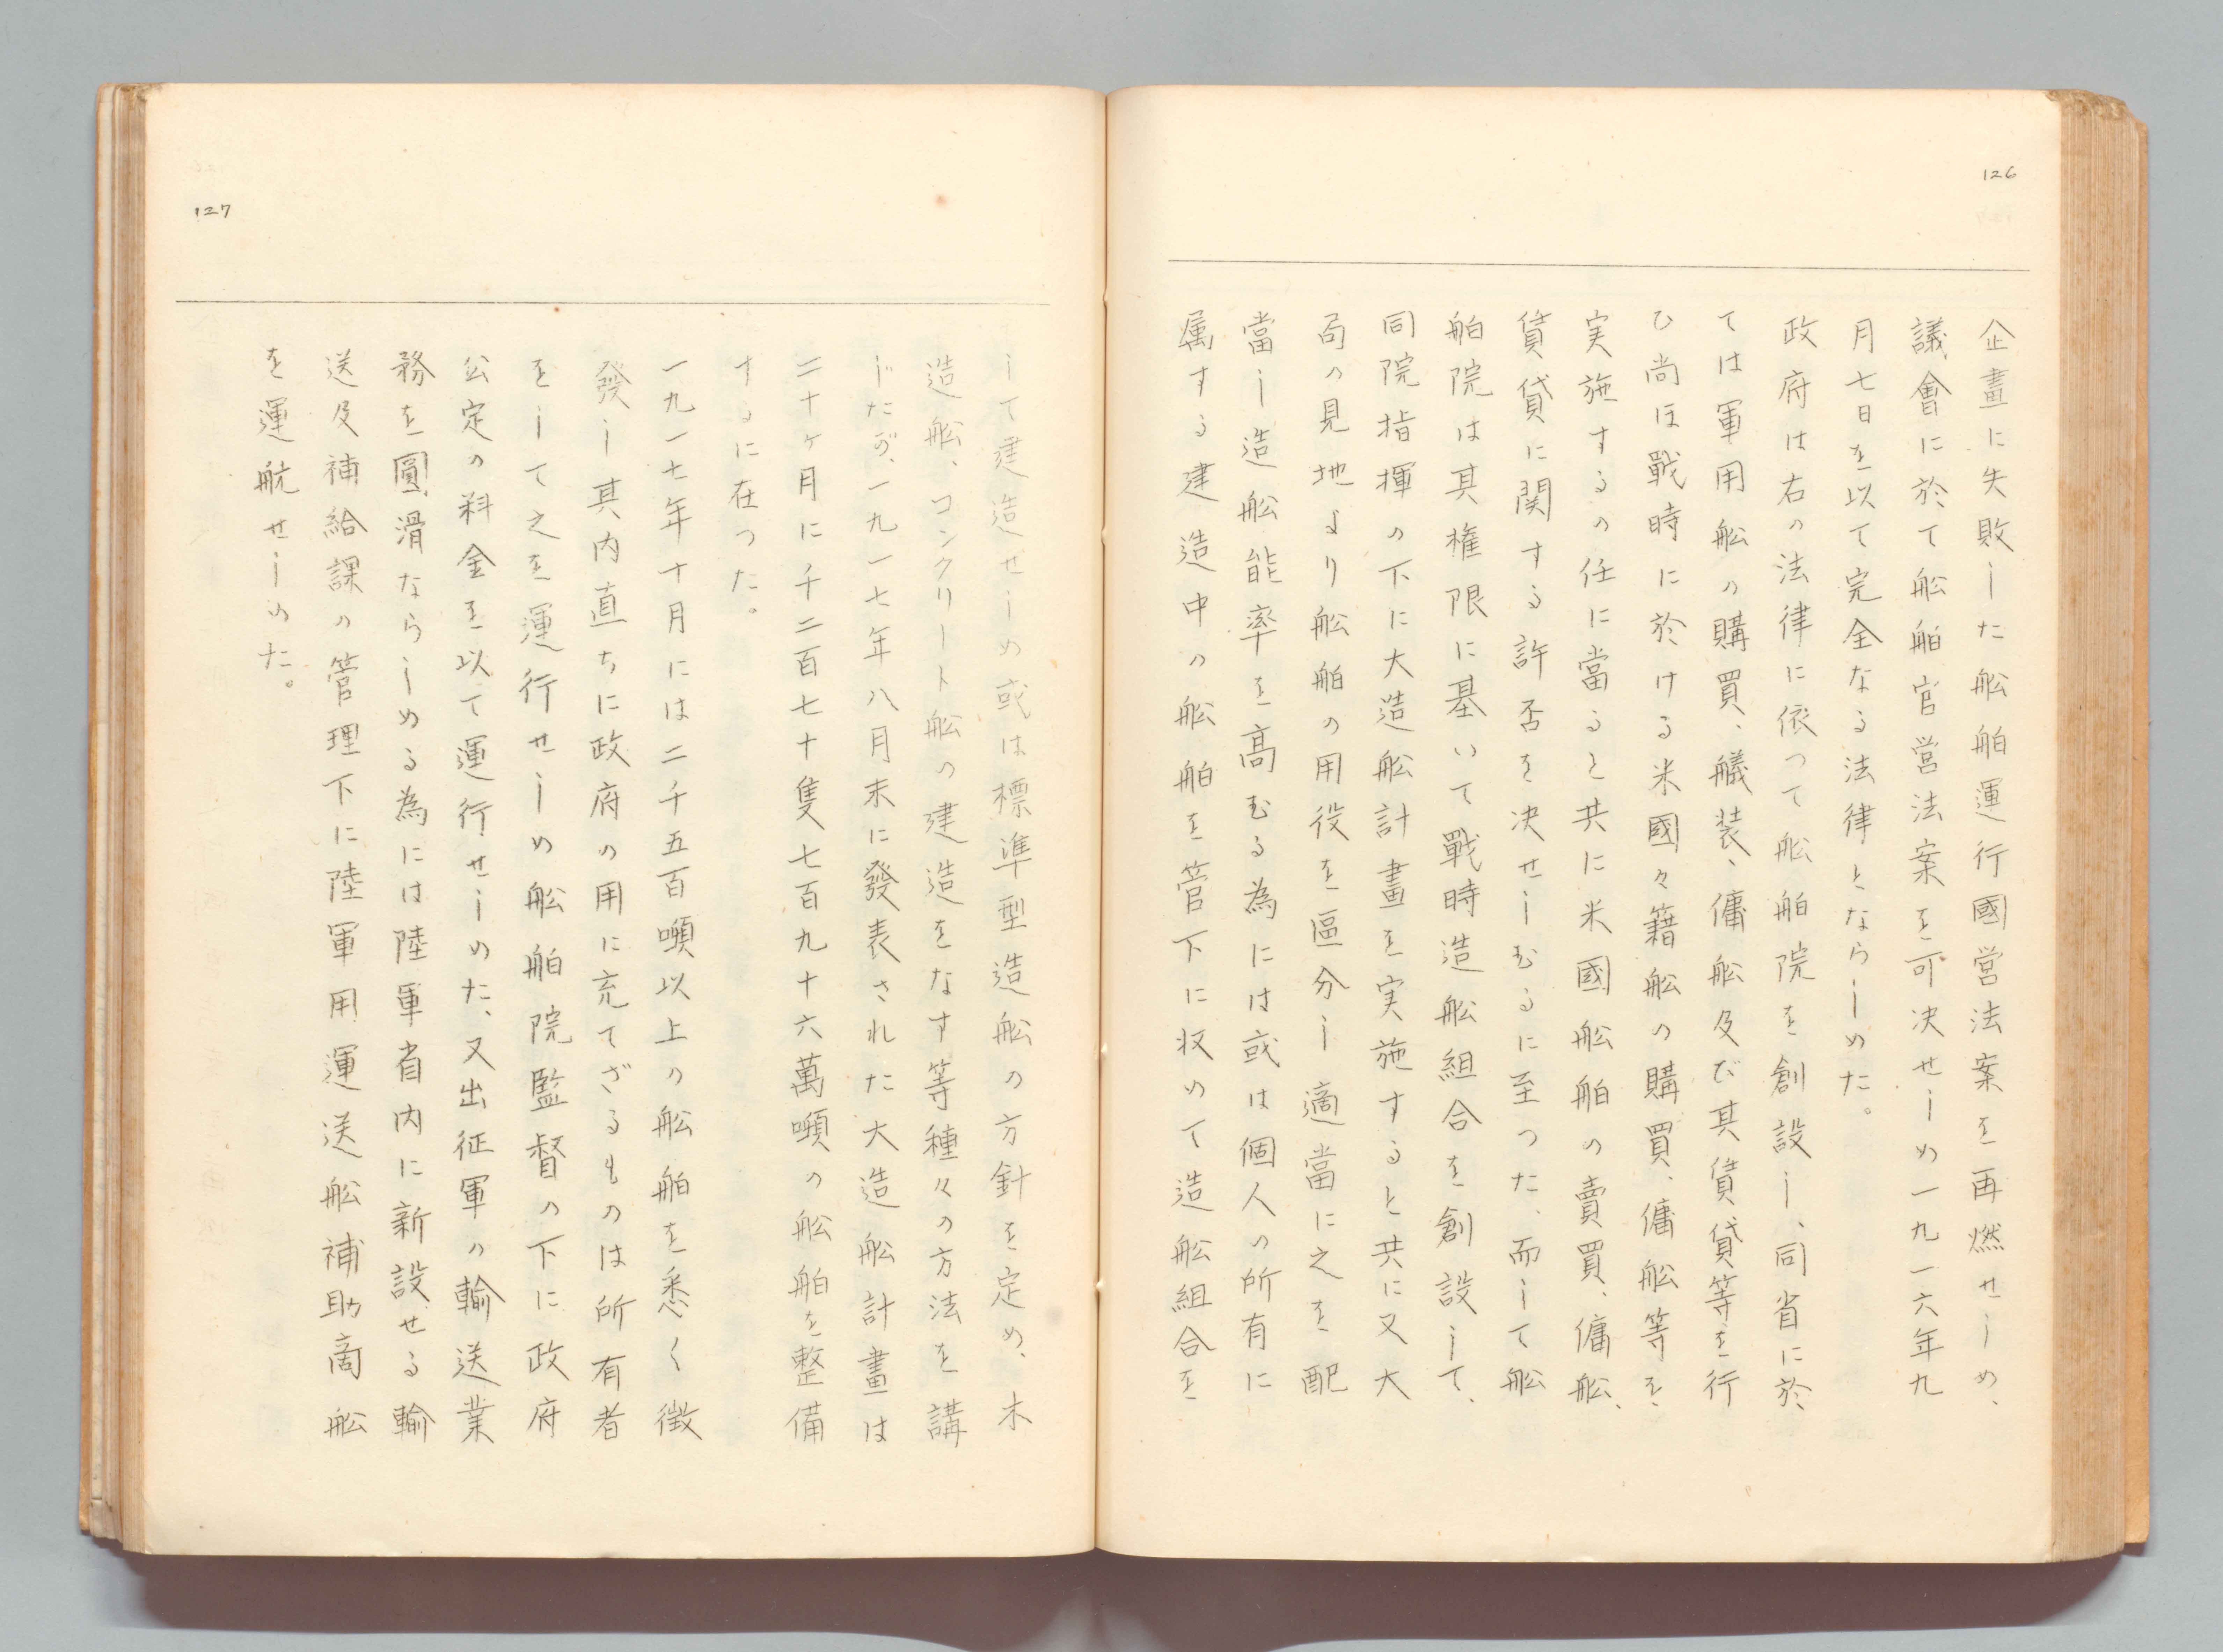 126
企畫に失敗した舩舶運行國営法案を再燃せしめ、
議會に於て舩舶官営法案を可决せしめ一九一六年九
月七日を以て完全なる法律とならしめた。
政府は右の法律に依つて舩舶院を創設し、同省に於
ては軍用舩の購買、艤装、傭舩及び其賃貸等を行
ひ尚ほ戰時に於ける米國々籍舩の購買、傭舩等を
実施するの任に當ると共に米國舩舶の賣買、傭舩、
賃貸に関する許否を决せしむるに至つた、而して舩
舶院は其権限に基いて戰時造舩組合を創設して、
同院指揮の下に大造舩計畫を実施すると共に又大
局の見地より舩舶の用役を區分し適當に之を配
當し造舩能率を高むる為には或は個人の所有に
属する建造中の舩舶を管下に収めて造舩組合を
127
して建造せしめ或は標準型造舩の方針を定め、木
造舩、コンクリート舩の建造をなす等種々の方法を講
じたが、一九一七年八月末に發表された大造舩計畫は
二十ヶ月に千二百七十隻七百九十六萬噸の舩舶を整備
するに在つた。
一九一七年十月には二千五百噸以上の舩舶を悉く徴
發し其内直ちに政府の用に充てざるものは所有者
をして之を運行せしめ舩舶院監督の下に政府
公定の料金を以て運行せしめた、又出征軍の輸送業
務を圓滑ならしめる為には陸軍省内に新設せる輸
送及補給課の管理下に陸軍用運送舩補助商舩
を運航せしめた。